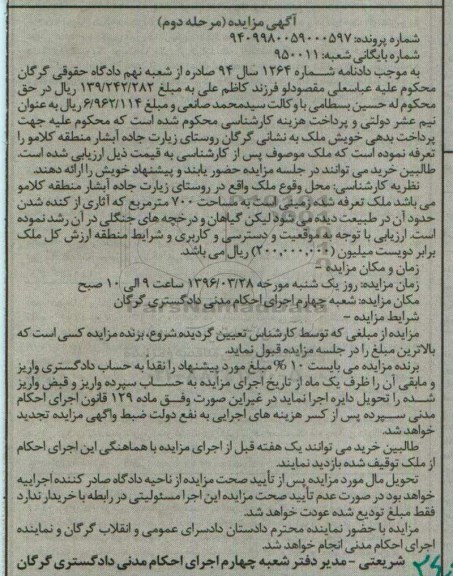 آگهی مزایده (مرحله دوم)
شماره پرونده: ۹۴۰۹۹۸۰۰۵۹۰۰۰۵۹۷
شماره بایگانی شعبه: ۹۵۰۰۱۱
به موجب دادنامه شماره ۱۲۶۴ سال ۹۴ صادره از شعبه نهم دادگاه حقوقی گرگان
محکوم علیه عباسعلی مقصودلو فرزند کاظم علی به مبلغ ۱۳۹/۲۴۲/۲۸۲ ریال در حق
محکوم له حسین بسطامی با وکالت سیدمحمد صانعی و مبلغ ۶/۹۶۲/۱۱۴ ریال به عنوان
نیم عشر دولتی و پرداخت هزینه کارشناسی محکوم شده است که محکوم علیه جهت
پرداخت بدهی خویش ملک به نشانی گرگان روستای زیارت جاده آبشار منطقه کلامو را
تعرفه نموده است که ملک موصوف پس از کارشناسی به قیمت ذیل ارزیابی شده است.
طالبین خرید می توانند در جلسه مزایده حضور یابند و پیشنهاد خویش را ارائه دهند.
نظریه کارشناسی: محل وقوع ملک واقع در روستای زیارت جاده آبشار منطقه کلامو
می باشد ملک تعرفه شده زمینی است به مساحت ۷۰۰ مترمربع که آثاری از کنده شدن
حدود آن در طبیعت دیده می شود لیکن گیاهان و درختچه های جنگلی در آن رشد نموده
است. ارزیابی با توجه به موقعیت و دسترسی و کاربری و شرایط منطقه ارزش کل ملک
برابر دویست میلیون (۲۰۰,۰۰۰,۰۰۰) ریال می باشد.
زمان و مکان مزایده -
زمان مزایده: روز یک شنبه مورخه ۱۳۹۶/۰۳/۲۸ ساعت ۹ الی ۱۰ صبح
مکان مزایده: شعبه چهارم اجرای احکام مدنی دادگستری گرگان
شرایط مزایده -
مزایده از مبلغی که توسط کارشناس تعیین گردیده شروع، برنده مزایده کسی است که
بالاترین مبلغ را در جلسه مزایده قبول نماید.
برنده مزایده می بایست ۱۰% مبلغ مورد پیشنهاد را نقداً به حساب دادگستری واریز
و مابقی آن را ظرف یک ماه از تاریخ اجرای مزایده به حساب سپرده واریز و قبض واریز
شده را تحویل دایره اجرا نماید در غیراین صورت وفق ماده ۱۲۹ قانون اجرای احکام
مدنی سپرده پس از کسر هزینه های اجرایی به نفع دولت ضبط واگهی مزایده تجدید
خواهد شد.
طالبین خرید می توانند یک هفته قبل از اجرای مزایده با هماهنگی این اجرای احکام
از ملک توقیف شده بازدید نمایند.
تحویل مال مورد مزایده پس از تأیید صحت مزایده از ناحیه دادگاه صادر کننده اجراییه
خواهد بود در صورت عدم تأیید صحت مزایده این اجرا مسئولیتی در رابطه با خریدار ندارد
فقط مبلغ تودیع شده عودت خواهد شد.
مزایده با حضور نماینده محترم دادستان دادسرای عمومی و انقلاب گرگان و نماینده
اجرای احکام مدنی انجام خواهد شد.
شریعتی - مدیر دفتر شعبه چهارم اجرای احکام مدنی دادگستری گرگان